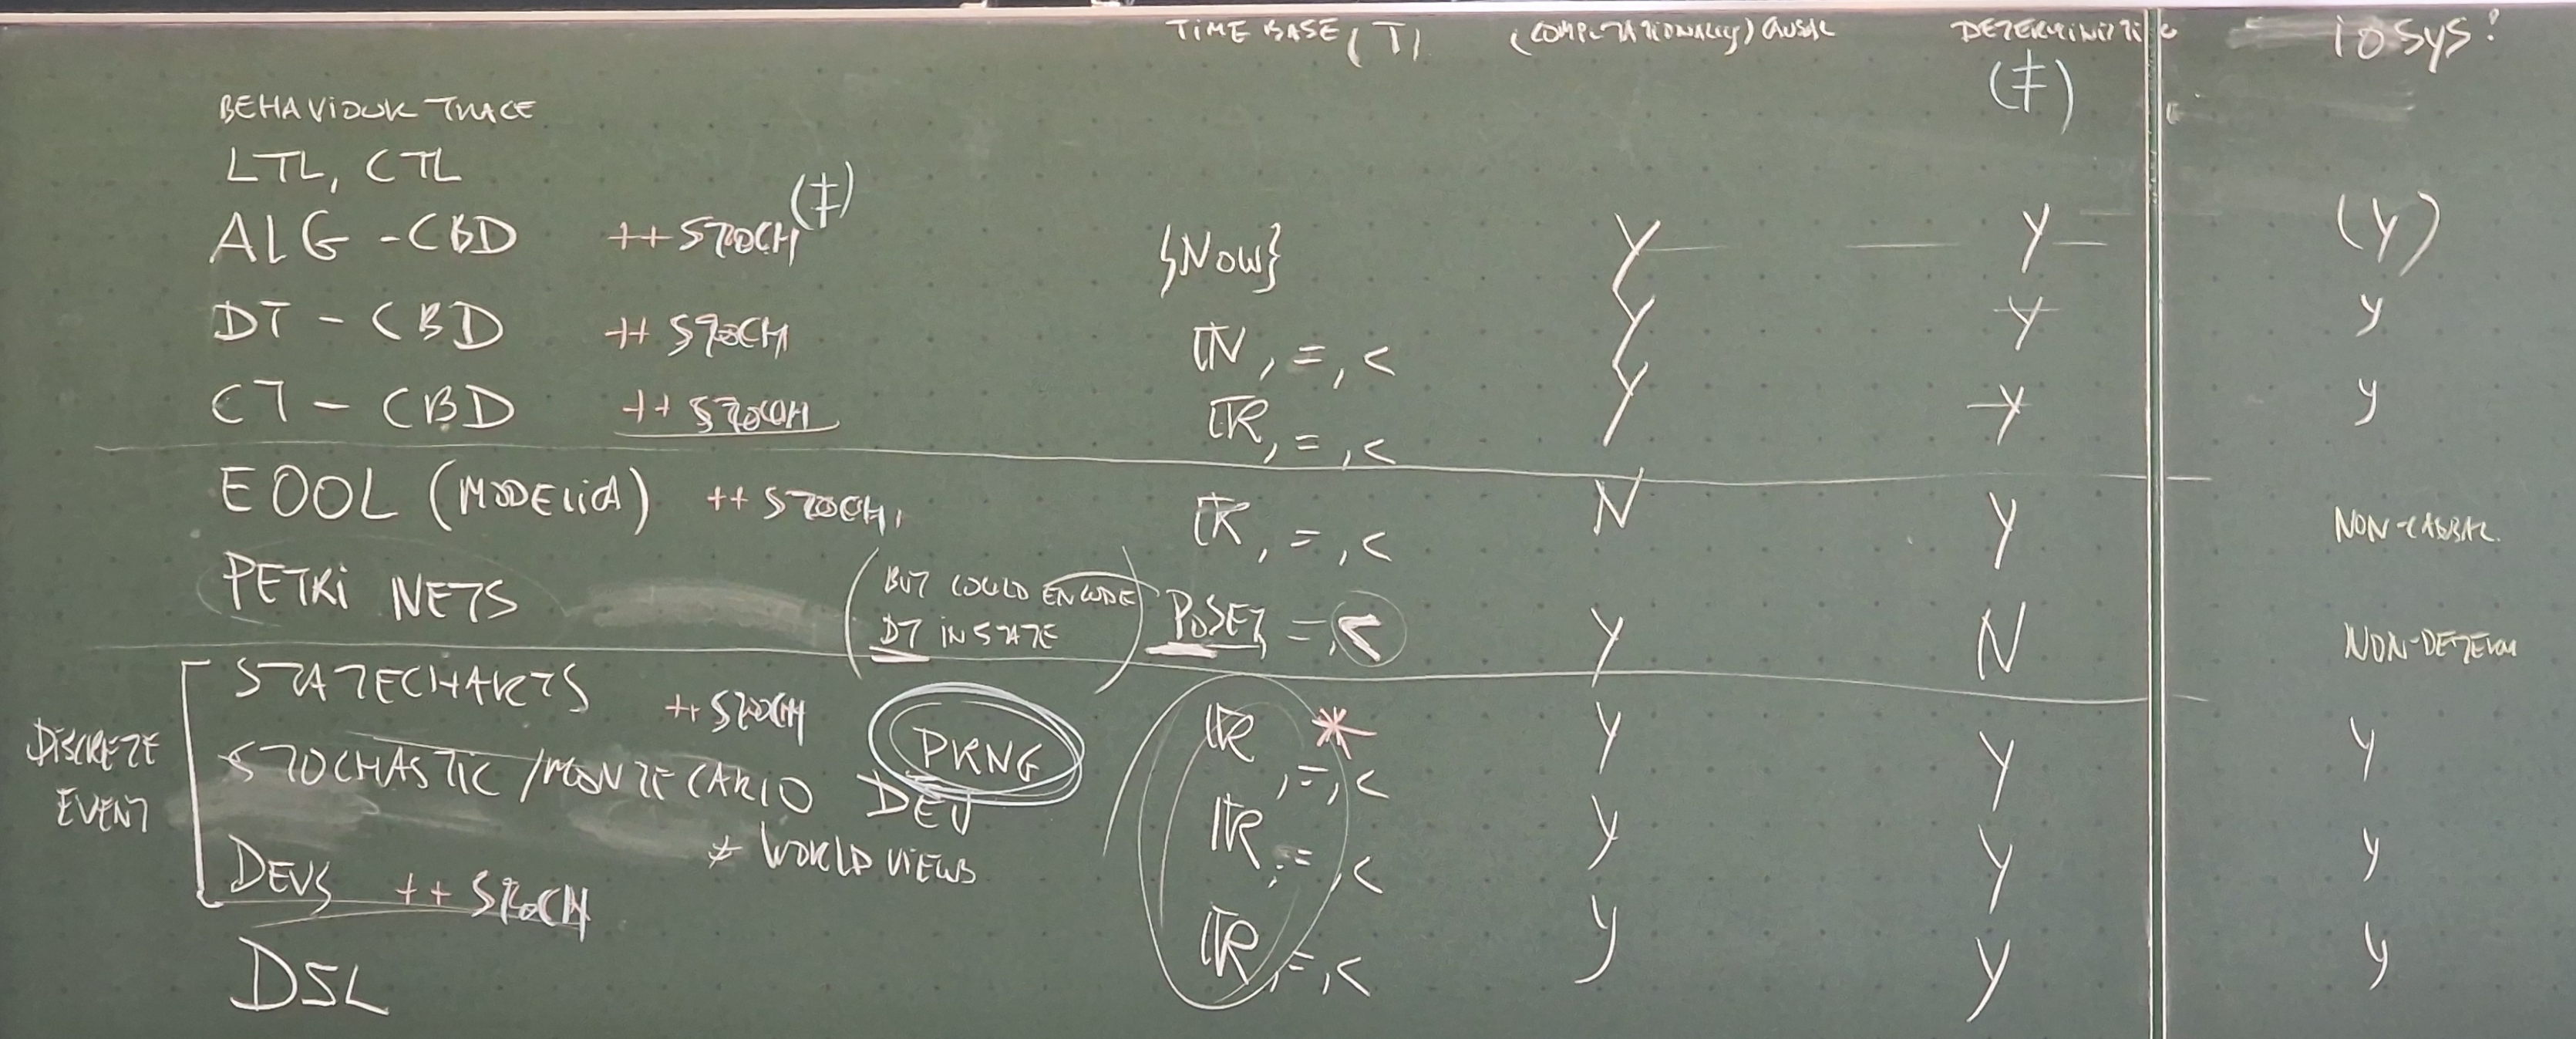 TIME BASE (T) (COMPUTATIONALLY) CAUSAL DETERMINISTIC ioSYS?
(‡)
BEHAVIOUR TRACE
LTL, CTL
ALG -CBD ++ STOCH (‡) {NOW} Y Y (Y)
DT - CBD ++ STOCH ℕ, =, < Y Y Y
CT - CBD ++ STOCH ℝ, =, < Y Y Y
EOOL (MODELICA) ++ STOCH. ℝ, =, < N Y NON-CAUSAL
PETRI NETS (BUT COULD ENCODE DT IN STATE) POSET =, < Y N NON-DETERM
STATECHARTS ++ STOCH ℝ * , =, < Y Y Y
DISCRETE EVENT
PRNG
STOCHASTIC / MONTE CARLO DEV ℝ, =, < Y Y Y
≠ WORLD VIEWS
DEVS ++ STOCH ℝ, =, < Y Y Y
DSL